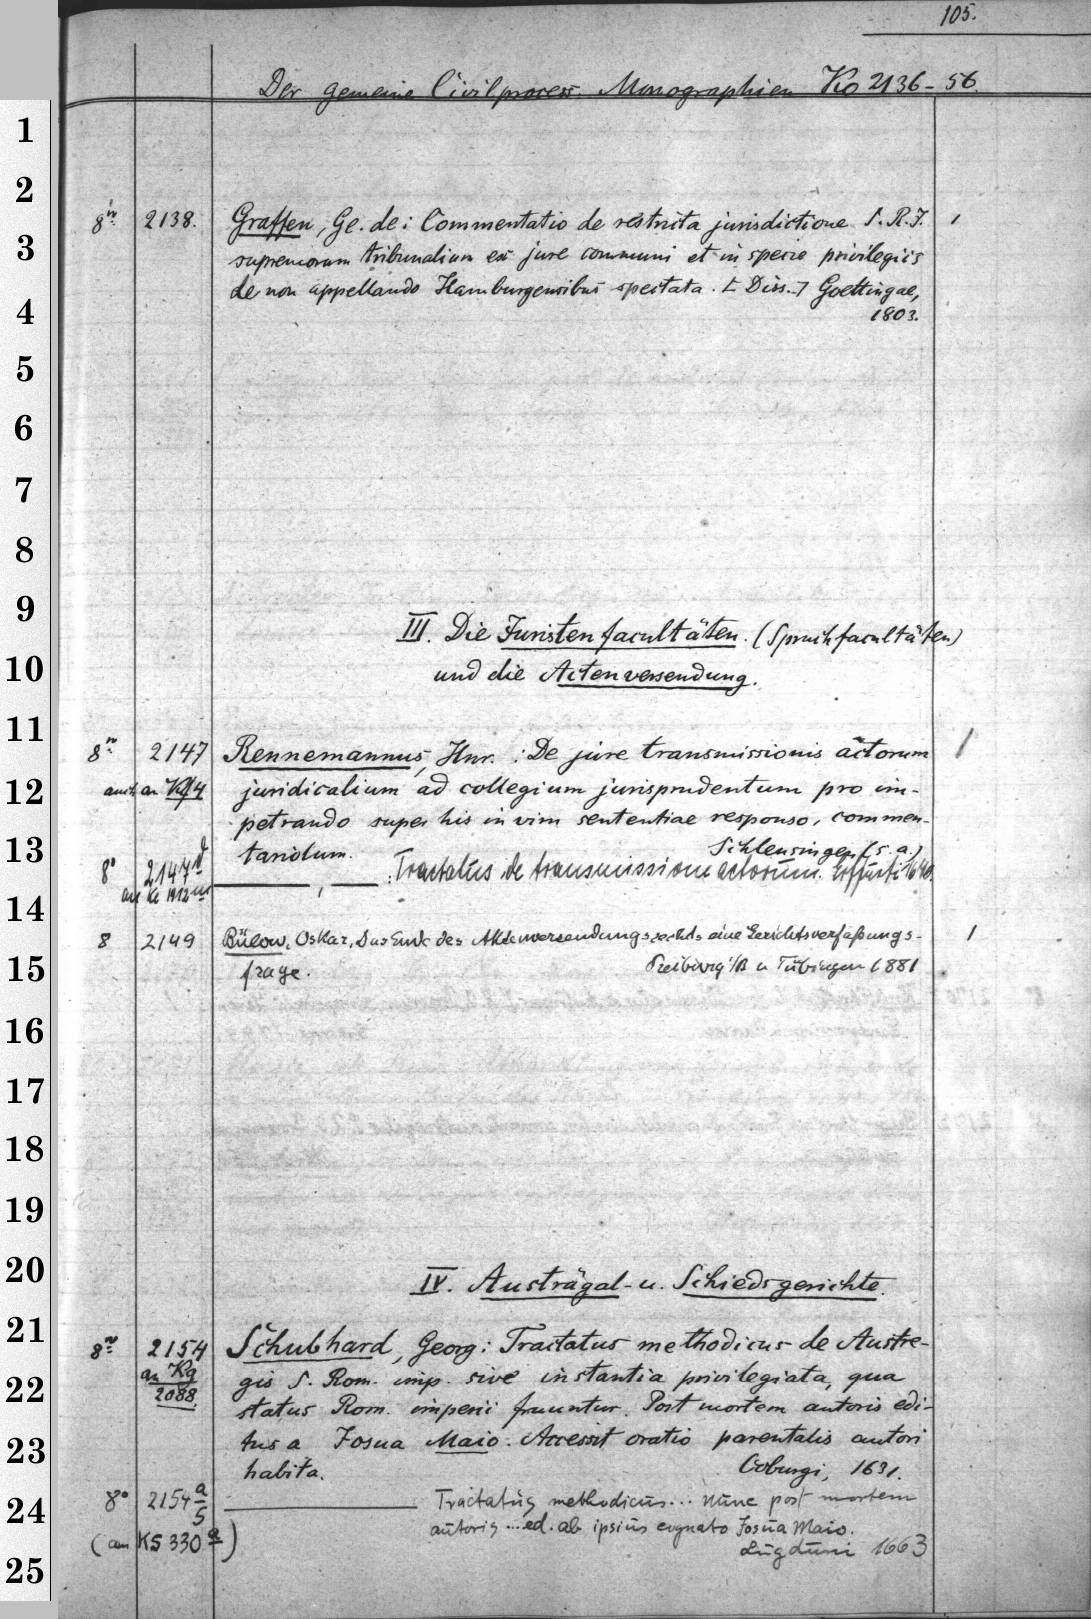 105.
Der gemeine Civilprocess. Monographien Ko 2136-56.
1
2
8º 2138. Graffen, Ge. de: Commentatio de restricta jurisdictione S. R. J. 1
3
supremorum tribunalium ex jure communi et in specie privilegiis
de non appellando Hamburgensibus spectata. [Diss.] Goettingae,
4
1803.
5
6
7
8
9
III. Die Juristenfacultäten. (Spruchfacultäten)
10
und die Actenversendung.
11
8º 2147 Rennemannus, Hnr.: De jure transmissionis actorum 1
12
auch an Kg 4 juridicalium ad collegium jurisprudentum pro im-
petrando super his in vim sententiae responso, commen-
13
tariolum. Schleusingen (s. a.)
8º 2147d ———, —— : Tractatus de transmissione actorum. Erffurti 1640.
an
14
8 2149 Bülow, Oskar, Das Ende des Aktenversendungsrechts eine Gerichtsverfaßungs- 1
15
frage. Freiburg i/B u Tübingen 1881
16
17
18
19
20
IV. Austrägal- u. Schiedsgerichte.
21
8º 2154 Schubhard, Georg: Tractatus methodicus de Austre-
22
an Kg gis S. Rom. imp. sive instantia privilegiata, qua
2088. status Rom. imperii fruuntur. Post mortem autoris edi-
23
tus a Josua Maio. Accessit oratio parentalis autori
habita. Coburgi, 1631.
24
8º 2154 a/5 ——— Tractatus methodicus... nunc post mortem
autoris ... ed. ab ipsius cognato Josua Maio.
(an KS 330 a)
25
Lugduni 1663